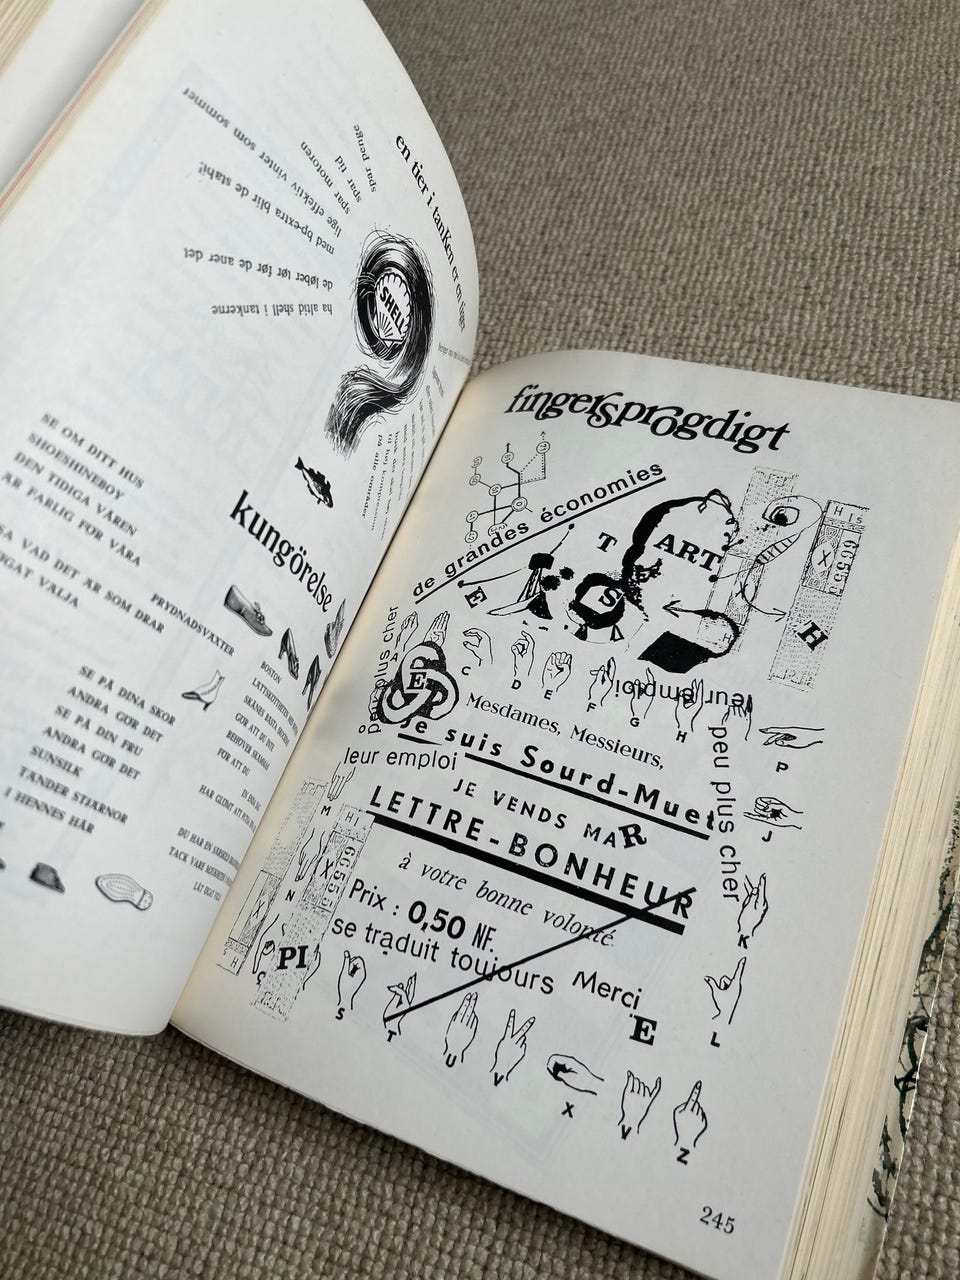 en tier i tanken er en finger
spar penge
spar tid
spar motoren
lige effektiv vinter som sommer
med bp-extra blir de stabil
de løber tør før de aner det
ha altid shell i tankerne
SHELL
kungörelse
SE OM DITT HUS
SHOESHINEBOY
DEN TIDIGA VÅREN
ÄR FARLIG FÖR VÅRA
PRYDNADSVÄXTER
VAD DET ÄR SOM DRAR
VÄLJA
SE PÅ DINA SKOR
ANDRA GÖR DET
SE PÅ DIN FRU
ANDRA GÖR DET
SUNSILK
TÄNDER STJÄRNOR
I HENNES HÅR
BOSTON
GÖR ATT DU INTE
BEHÖVER SKAMMAS
FÖR ATT DU
fingersprogdigt
de grandes économies
T
ART
E
S
H
H I S
X
6655
A
C
D
E
F
G
H
leur emploi
peu plus cher
Mesdames, Messieurs,
Je suis Sourd-Muet
leur emploi
JE VENDS MAR
LETTRE-BONHEUR
à votre bonne volonté.
Prix : 0,50 NF.
se traduit toujours Merci
peu plus cher
P
J
K
L
M
N
PI
E
S
T
U
V
X
V
Z
245